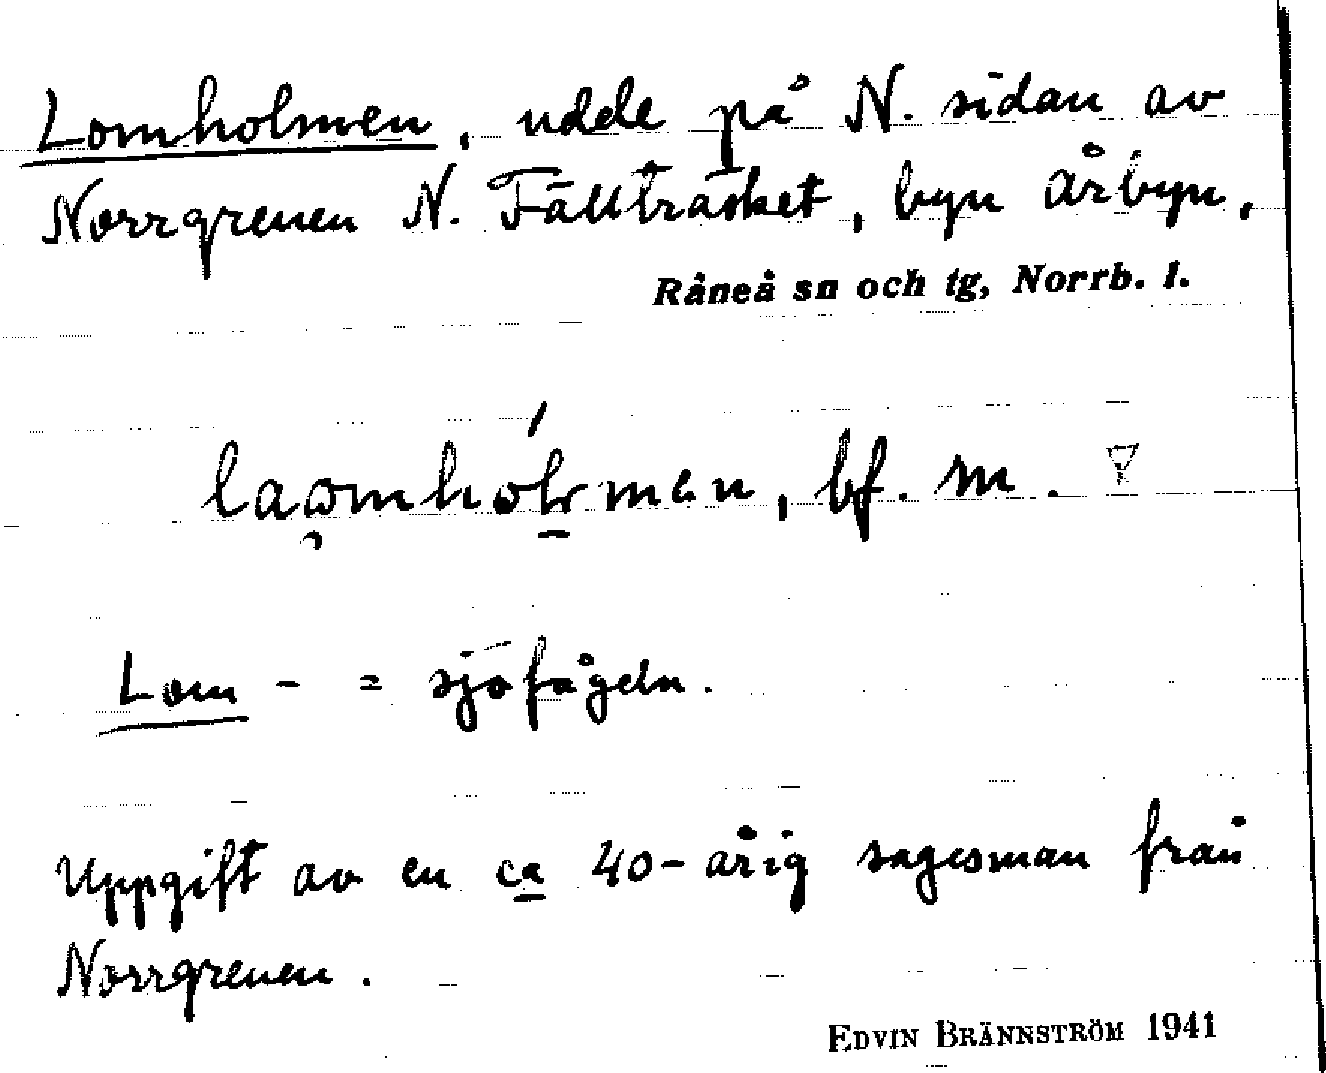 Lomholmen, udde på N. sidan av
Norrgrenen N. Fällträsket, byn Årbyn,
Råneå sn och tg, Norrb. l.
bf. m.
Lom - = sjöfågeln.
Uppgift av en ca 40-årig sagesman från
Norrgrenen.
EDVIN BRÄNNSTRÖM 1941